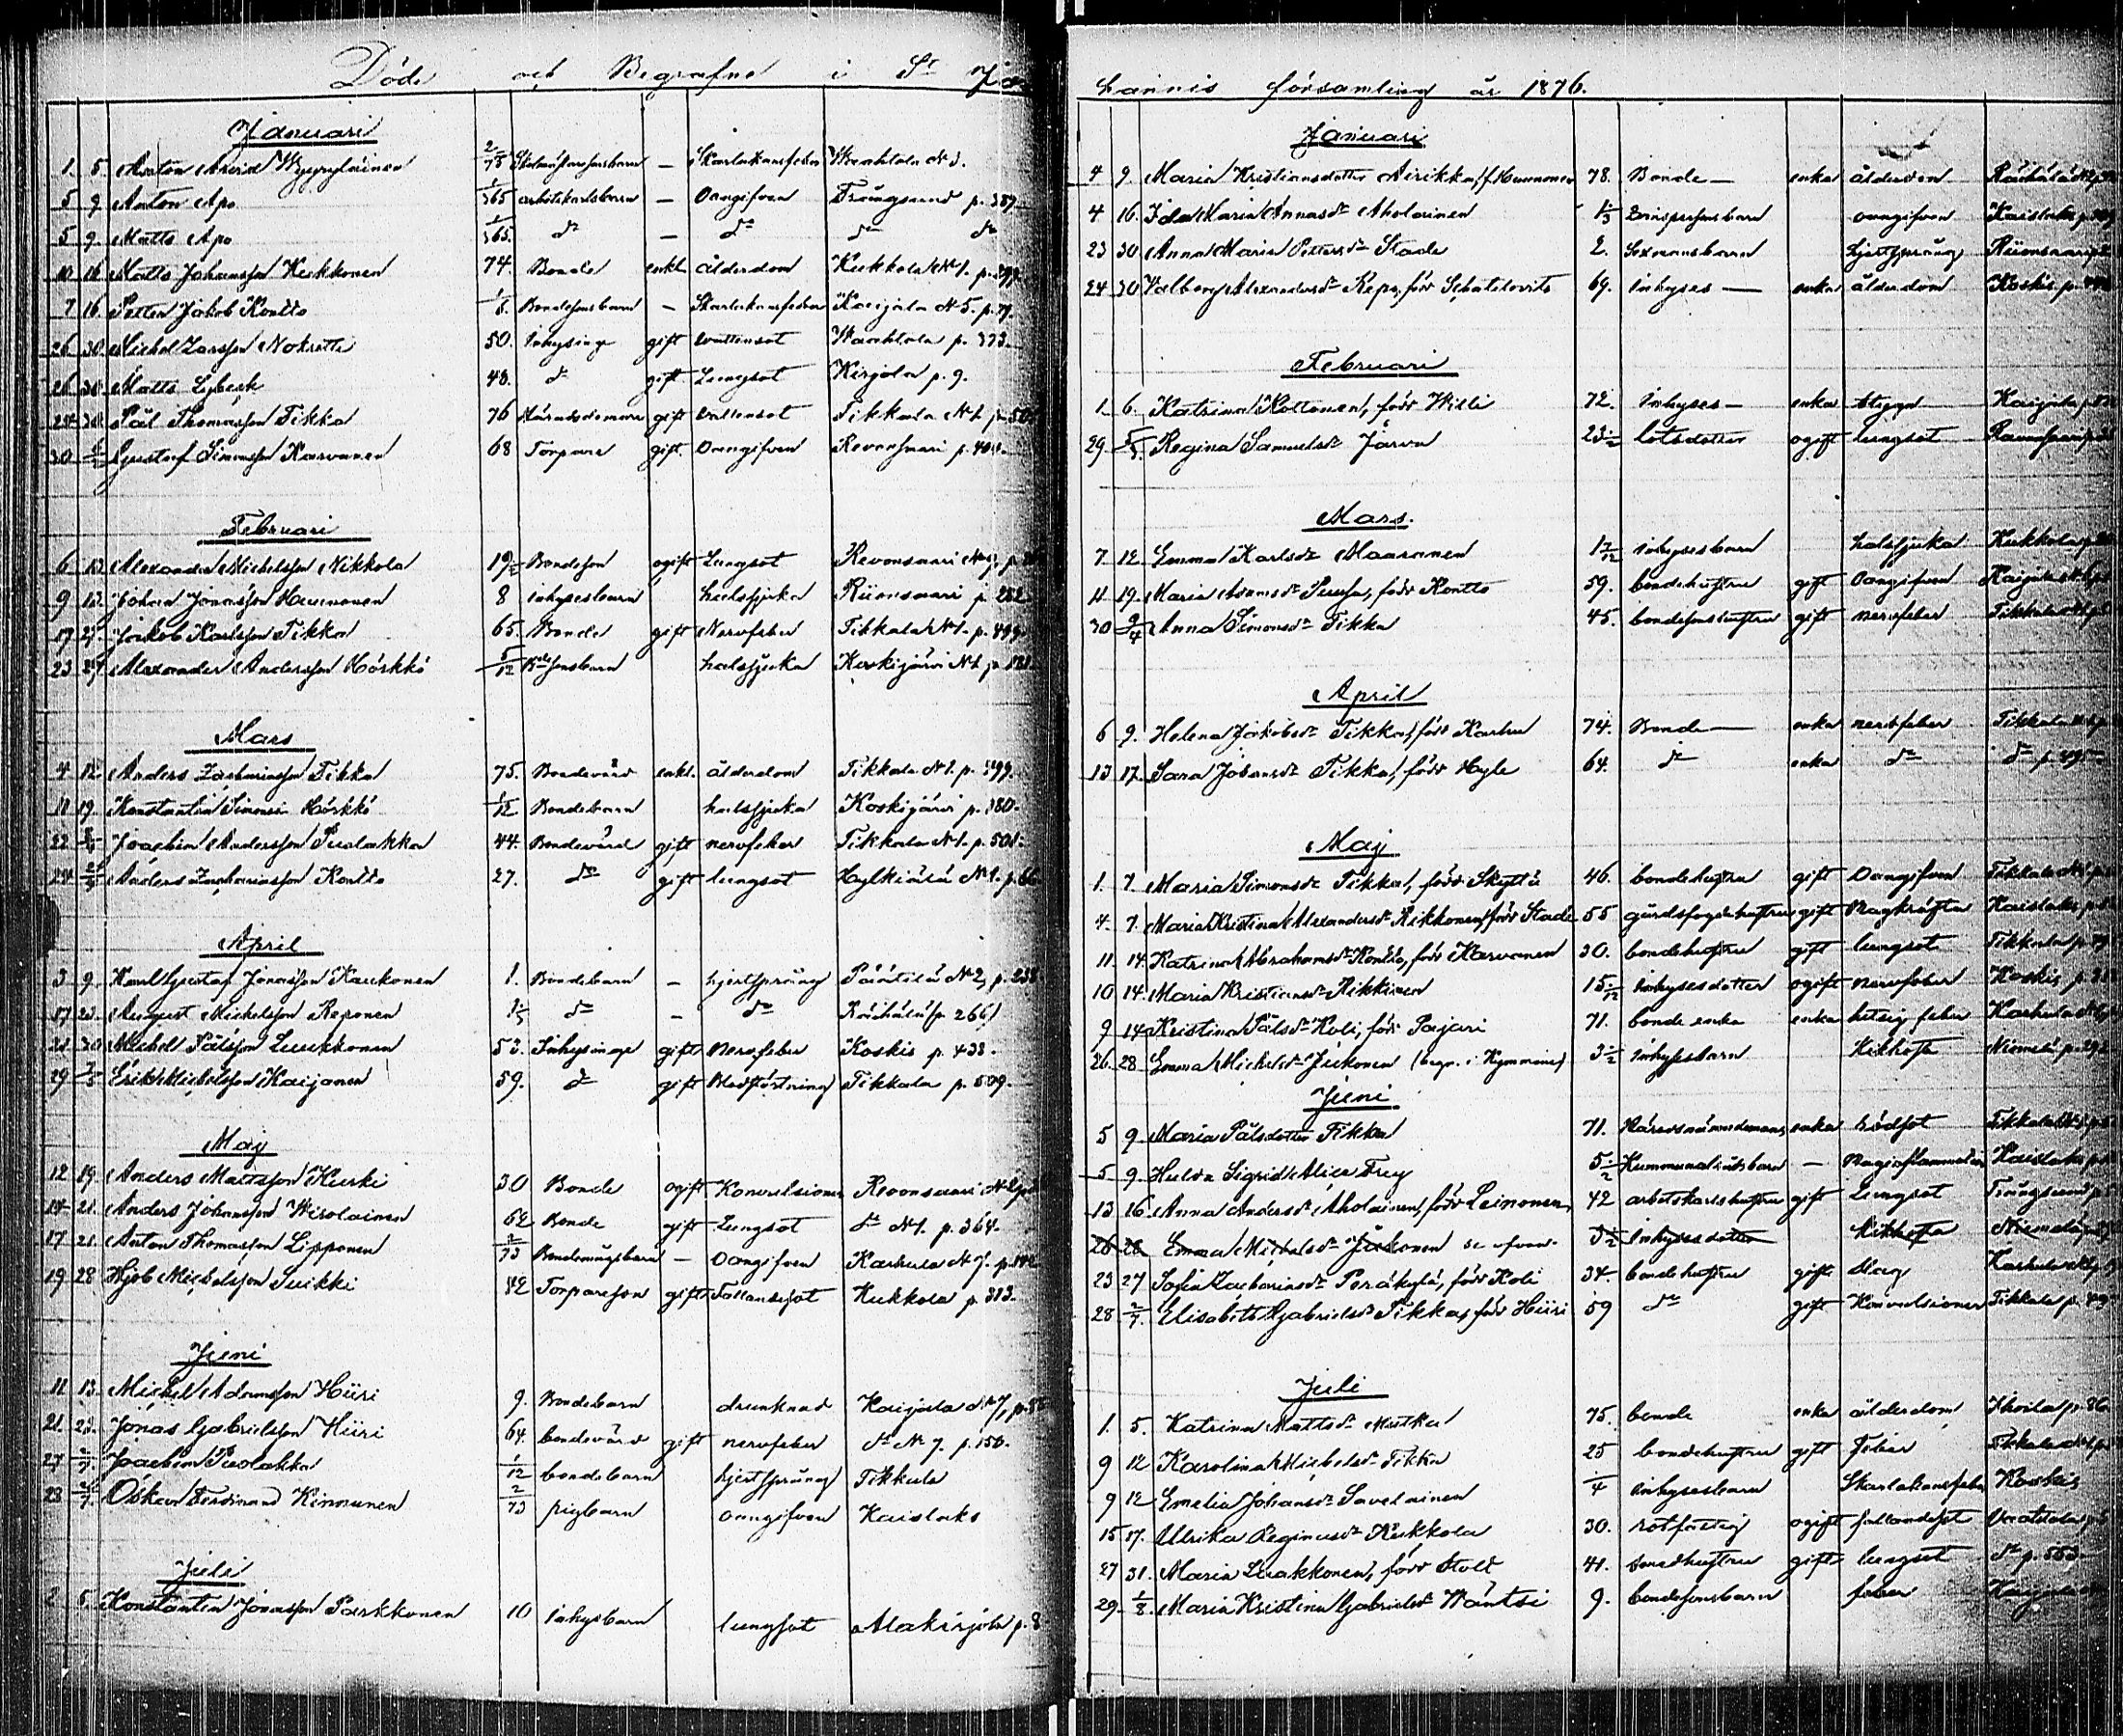 Döde och Begrafne i St Jo
Januari
1. 5. Anton Arvid Wepsäläinen 2/73 — Skarlakansfeber Waahtola N 3.
5 9 Anton Apo 1/365 arbetskarlsbarn — Oangifven Trångsund p. 387
5 9. Matts Apo 1/365. do — do do do
10 16 Matts Johansson Kukkonen 74. Bonde enkl. ålderdom Kukkola N 1.
7 16. Petter Jakob Kontto 1/8. Bondesonbarn — Skarlakansfeber Kaijala N 5. p. 79.
26 30. Michel Larsson Nokratti 50. Inhysing gift vattensot Waahtola p. 373
26 30 Matts Lybeck 48. do gift Lungsot Kirjola p. 9.
24 30 Pål Thomasson Tikka 76 Häradsdomare gift vattensot Tikkala N 1.
30 Gustaf Simonsson Karvanen 68 Torpare gift Oangifven Revonsaari p. 404.
Februari
6 13 Alexander Michelsson Nikkola 19 1/2 Bondeson ogift Lungsot Revonsaari
9 13. Johan Jonasson Haunonen 8 inhysesbarn halssjuka Riionsaari p. 282
19 27. Jakob Karlsson Tikka 65. Bonde gift Nervfeber Tikkala N 1. p. 499
23 27 Alexander Andersson Körkkö 5/12 halssjuka Koskijärvi N 1.
Mars
4 12 Anders Zachariasson Tikka 75. Bondevärd enkl. ålderdom Tikkala N 1. p. 499.
11 19. Konstantin Simonss. Körkkö 1/12 Bondebarn halssjuka Koskijärvi p. 380.
22 2/4 Joachim Andersson Puolakka 44. Bondevärd gift nervfeber Tikkala N 1. p. 501.
24 2/4 Anders Zachariasson Kontto 27. do gift lungsot Hylkiälä N 1. p. 66
April
3 9. Karl Gustaf Jonasson Kaukonen 1. Bondebarn — hjertsprång Päätilä N 2, p. 238
17 23. August Michelsson Reponen 1/3 do — do Räihälä p. 266
21 30 Michel Pålsson Luukkonen 53. Inhysinge gift Nervfeber Koskis p. 438.
29 7/5 Erik Michelsson Kaijanen 59. do gift Blodförstning Tikkala p. 509.
Maj
12 19. Anders Mattsson Kurki 30 Bonde ogift Konvulsioner Revonsaari
14 21. Anders Johansson Wirolainen 62 Bonde gift Lungsot do N 1. p. 364.
17 21 Anton Thomasson Lipponen 2/73 — Oangifven Karhula N 7. p. 142
19 28 Hjob Michelsson Suikki 42 Torpareson gift Fallandesot Kukkola p. 313.
Juni
11 13. Michel Adamsson Hiiri 9. Bondebarn drunknad Kaijala
21. 23. Jonas Gabrielsson Hiiri 64. bondevärd gift nervfeber do N 7. p. 156.
27 2/7. Joachim Puolakka 1/12 bondebarn hjertsprång Tikkala
28 2/7. Oskar Ferdinand Kinnunen 2/73 pigbarn oangifven Kaislaks
Juli
2 5. Konstantin Jonasson Parkkonen 10 inhysbarn lungsot Alakirjola p. 8
hannis församling år 1876.
Januari
4 9. Maria Kristiansdotter Airikka, f. Haunonen 78. Bonde — enka ålderdom
4 16. Ida Maria Annasdr Aholainen 1/3 oangifven Kaislaks
23 30 Anna Maria Pettersdr Stade 2. hjertsprång Riionsaari
24 30 Valborg Alexandersdr Repo, född 69. inhyses — enka ålderdom Koskis
Februari
1. 6. Katrina Rottonen, född Willi 72. Inhyses — enka stygn Kaijala
29. 5/3. Regina Samuelsdr Järvn 23 1/2 lotsdotter ogift lungsot
Mars.
7. 12. Emma Karlsdr Maaranen 1 7/12 inhysesbarn halssjuka Kukkola
11 19. Maria Adamsdr Suusa, född Kontto 59. bondehustru gift Oangifven Kaijala
30 2/4 Anna Simonsdr Tikka 45. bondesonshustru gift nervfeber Tikkala
April
6 9. Helena Jakobsdr Tikka, född Karhu 74. Bonde — enka nervfeber Tikkala
13 17. Sara Johansdr Tikka, född Hyle 64. do enka do do p. 49
Maj
1. 7. Maria Simonsdr Tikka, född Skyttä 46. bondehustru gift Oangifven Tikkala
4. 7. Maria Kristina Alexandersdr Kikkonen, född Stade 55 gårdsfogdehustru gift Magkräfta Kaislaks
11. 14. Katrina Abrahamsdr Kontto, född Karvanen 30. bondehustru gift lungsot Tikkala
10 14. Maria Kristiansdr Kikkinen 15 inhysesdotter ogift Nervfeber Koskis
9 14 Kristina Pålsdr Koli, född Pajari 71. bonde enka enka hetsig feber Karhula
26. 28 Emma Michelsdr Jäkonen (begr. i Kymmene) 3 1/2 inhysesbarn Kikhosta Niemelä
Juni
5 9. Maria Pålsdotter Tikka 71. enka rödsot Tikkala
5 9. Hulda Sigrid Alice Frey 5 — Kaislaks
13 16. Anna Andersdr Aholainen, född Leinonen 42 arbetskarlshustru gift Lungsot Trångsund
26 28 Emma Michelsdr Jäkonen se ofvan 3 1/2 inhysesdotter Kikhosta Niemelä
23 27 Sofia Zachariasdr Peräkylä, född Koli 34. bondehustru gift slag Karhula
28 2/7. Elisabeth Gabrielsdr Tikka, född Hiiri 59 do gift Konvulsioner Tikkala
Juli
1. 5. Katrina Mattsdr Mutka 75. bonde enka ålderdom
9 12 Karolina Michelsdr Tikka 25 bondehustru gift Feber Tikkala
9 12 Emelia Johansdr Savolainen 1/4 inhysesbarn Skarlakansfeber Koskis
15 17. Ulrika Reginasdr Kukkola 30. rotfattig ogift fallandesot
27 31. Maria Luukkonen, född Hold 41. bondhustru gift lungsot do p. 553
29. 1/8. Maria Kristina Gabrielsdr Wäntsi 9. bondesonsbarn feber